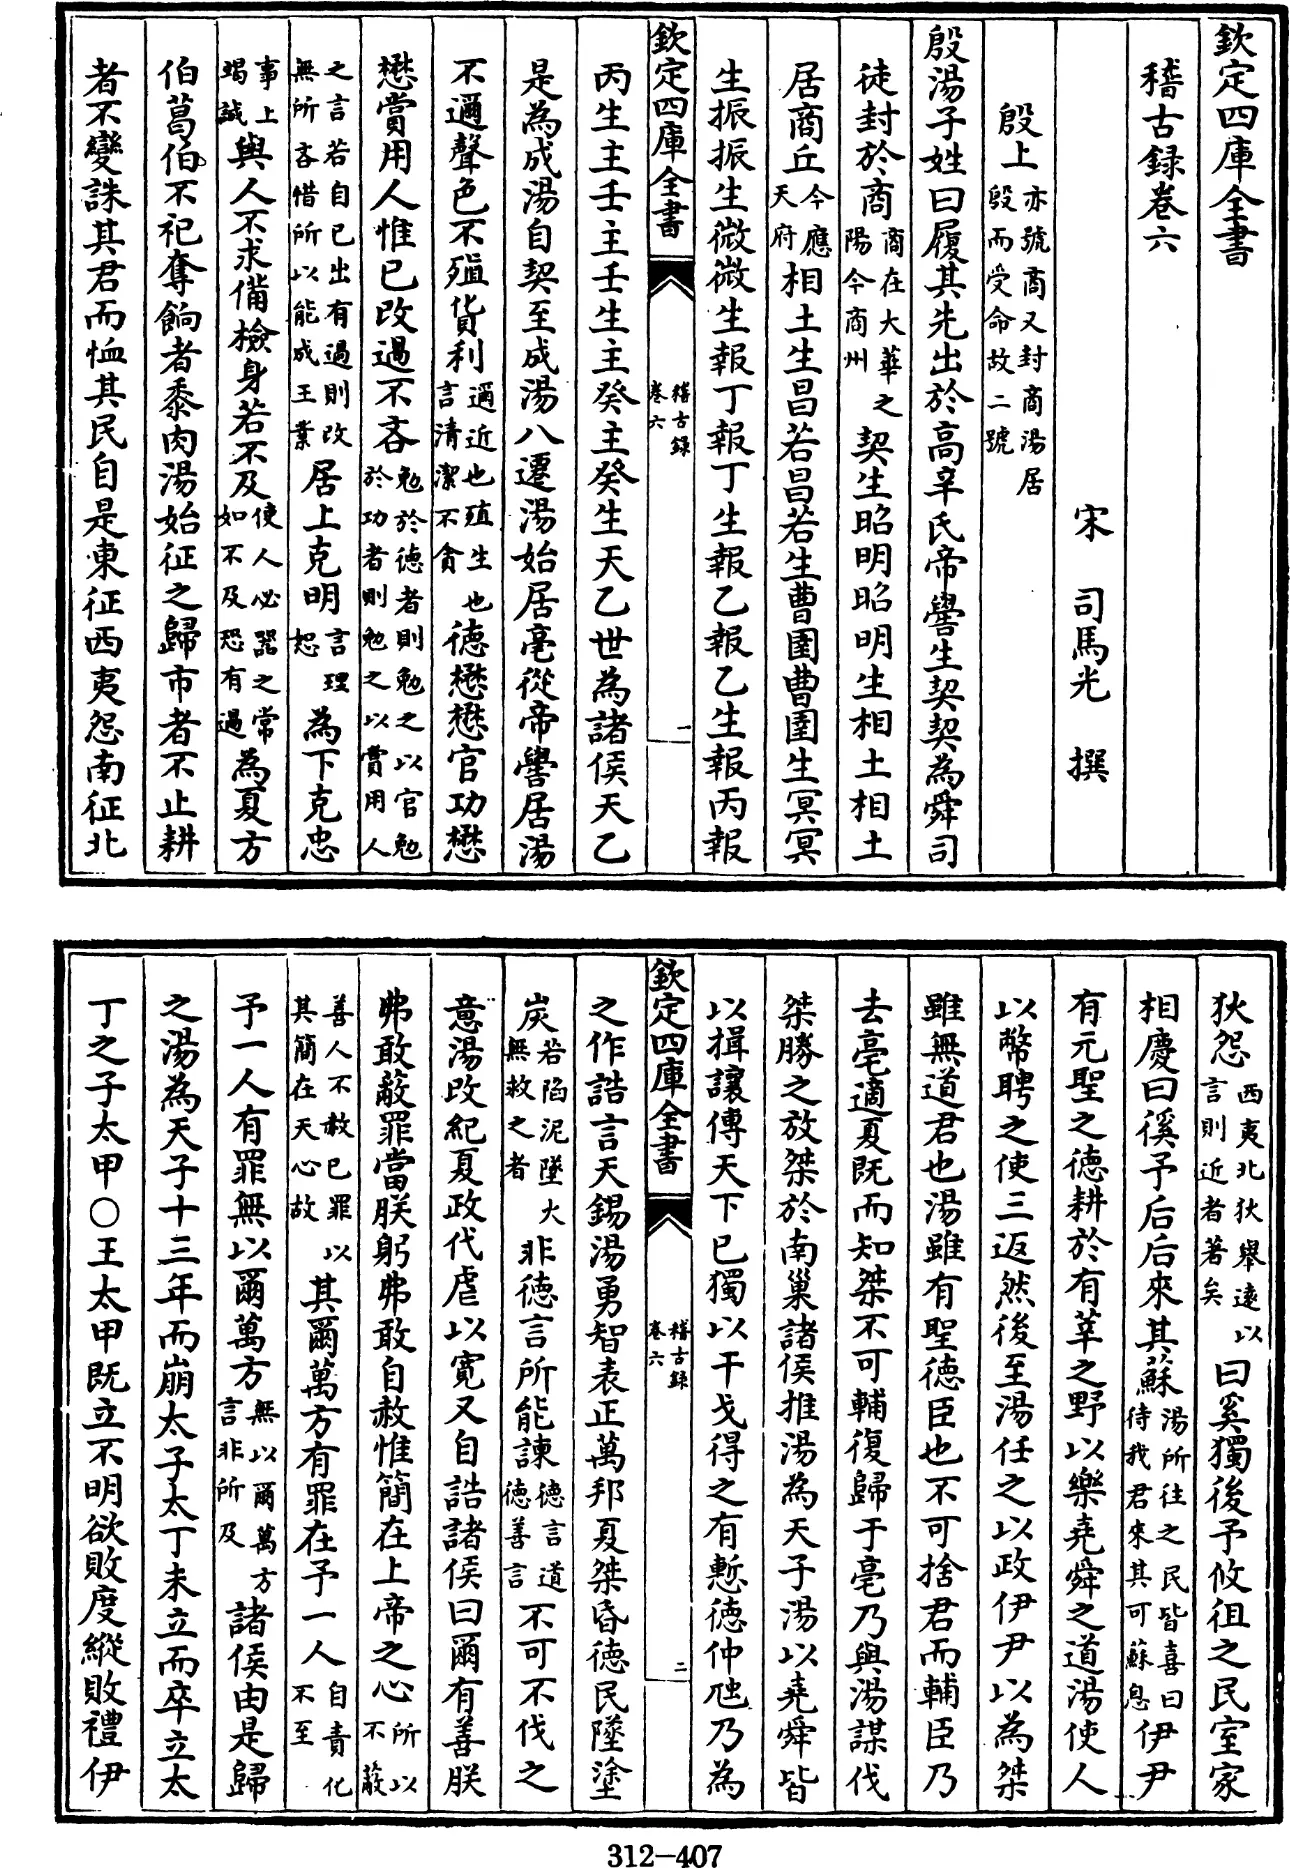 欽定四庫全書
稽古録卷六
宋　司馬光　撰
殷上亦號商又封商湯居殷而受命故二號
殷湯子姓曰履其先出於高辛氏帝嚳生契契為舜司
徒封於商商在大華之陽今商州契生昭明昭明生相土相土
居商丘今應天府相土生昌若昌若生曹圉曹圉生冥冥
生振振生微微生報丁報丁生報乙報乙生報丙報
欽定四庫全書
稽古録卷六
一
丙生主壬主壬生主癸主癸生天乙世為諸侯天乙
是為成湯自契至成湯八遷湯始居亳從帝嚳居湯
不邇聲色不殖貨利邇近也殖生也言清潔不貪德懋懋官功懋
懋賞用人惟已改過不吝勉於德者則勉之以官勉於功者則勉之以賞用人
之言若自已出有過則改無所吝惜所以能成王業居上克明言理恕為下克忠
事上竭誠與人不求備檢身若不及使人必器之常如不及恐有過為夏方
伯葛伯不祀奪餉者黍肉湯始征之歸市者不止耕
者不變誅其君而恤其民自是東征西夷怨南征北
狄怨西夷北狄舉遠以言則近者著矣曰奚獨後予攸徂之民室家
相慶曰徯予后后來其蘇湯所往之民皆喜曰待我君來其可蘇息伊尹
有元聖之德耕於有莘之野以樂堯舜之道湯使人
以幣聘之使三返然後至湯任之以政伊尹以為桀
雖無道君也湯雖有聖德臣也不可捨君而輔臣乃
去亳適夏既而知桀不可輔復歸于亳乃與湯謀伐
桀勝之放桀於南巢諸侯推湯為天子湯以堯舜皆
以揖讓傳天下已獨以干戈得之有慙德仲虺乃為
欽定四庫全書
稽古録卷六
二
之作誥言天錫湯勇智表正萬邦夏桀昏德民墜塗
炭若陷泥墜火無救之者非德言所能諫德言道德善言不可不伐之
意湯改紀夏政代虐以寛又自誥諸侯曰爾有善朕
弗敢蔽罪當朕躬弗敢自赦惟簡在上帝之心所以不蔽
善人不赦已罪以其簡在天心故其爾萬方有罪在予一人自責化不至
予一人有罪無以爾萬方無以爾萬方言非所及諸侯由是歸
之湯為天子十三年而崩太子太丁未立而卒立太
丁之子太甲○王太甲既立不明欲敗度縱敗禮伊
312-407